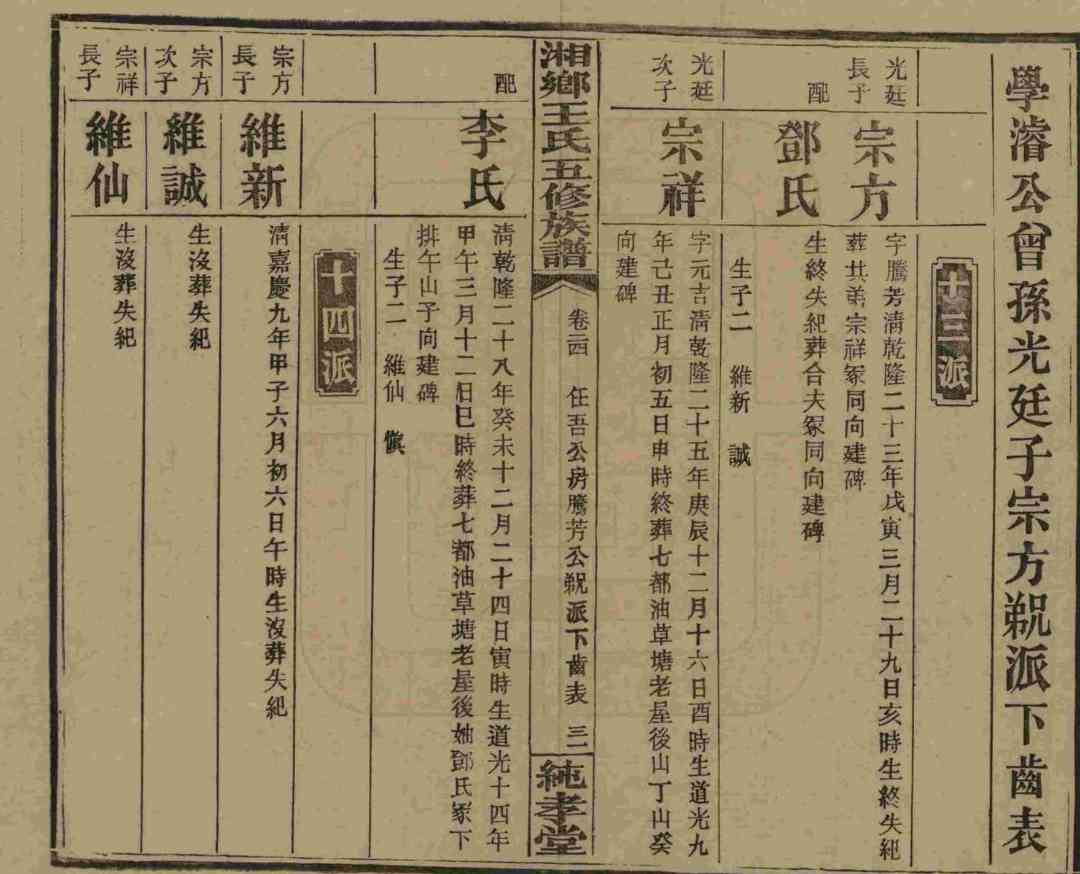 學濬公曾孫光廷子宗方䋎派下齒表
十三派
光廷
長子
宗方
字騰芳清乾隆二十三年戊寅三月二十九日亥時生終失紀
葬共弟宗祥冢同向建碑
配
鄧氏
生終失紀葬合夫冢同向建碑
生子二 維新 誠
光廷
次子
宗祥
字元吉清乾隆二十五年庚辰十二月十六日酉時生道光九
年己丑正月初五日申時終葬七都油草塘老屋後山丁山癸
向建碑
湘鄉王氏五修族譜
卷二四 任吾公房騰芳公派下齒表 三一
純孝堂
配
李氏
清乾隆二十八年癸未十二月二十四日寅時生道光十四年
甲午三月十二日巳時終葬七都油草塘老屋後妣鄧氏冢下
排午山子向建碑
生子二 維仙 慎
十四派
宗方
長子
維新
清嘉慶九年甲子六月初六日午時生沒葬失紀
宗方
次子
維誠
生沒葬失紀
宗祥
長子
維仙
生沒葬失紀